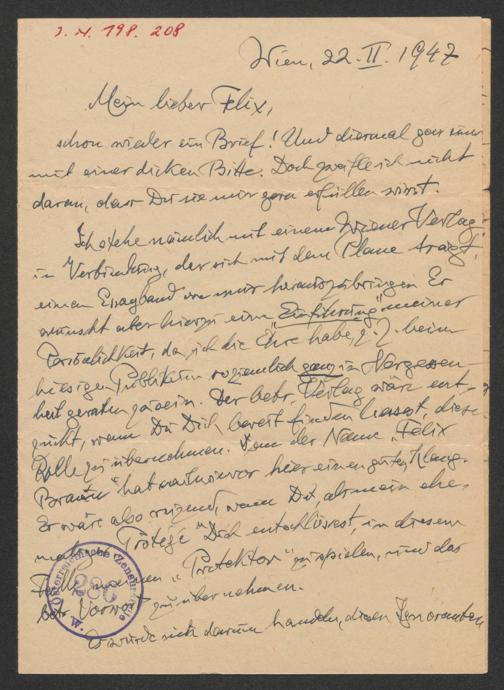 J. N. 198. 208
Wien, 22. II. 1947
Mein lieber Felix,
schon wieder ein Brief! Und diesmal gar einer
mit einer dicken Bitte. Doch zweifle ich nicht
daran, dass Du sie mir gern erfüllen wirst.
Ich stehe nämlich mit einem Wiener Verlag
in Verbindung, der sich mit dem Plane trägt,
einen Essayband von mir herauszubringen. Er
wünscht aber hierzu eine „Einführung" meiner
Persönlichkeit, da ich die Ehre habe, z. Z. beim
hiesigen Publikum so ziemlich ganz in Vergessen-
heit geraten zu sein. Der betr. Verlag wäre ent-
zückt, wenn Du Dich bereit finden liessest, diese
Rolle zu übernehmen. Denn der Name „Felix
Braun" hat nach wie vor hier einen guten Klang.
Es wäre also reizend, wenn Du, als mein ehe-
maliger „Protégé" Dich entschlössest, in diesem
Falle meinen „Protektor" zu spielen, und das
betr. Vorwort zu übernehmen.
Es würde sich darum handeln, diesen Ignoranten
Österreichische Zensurstelle
286
W.